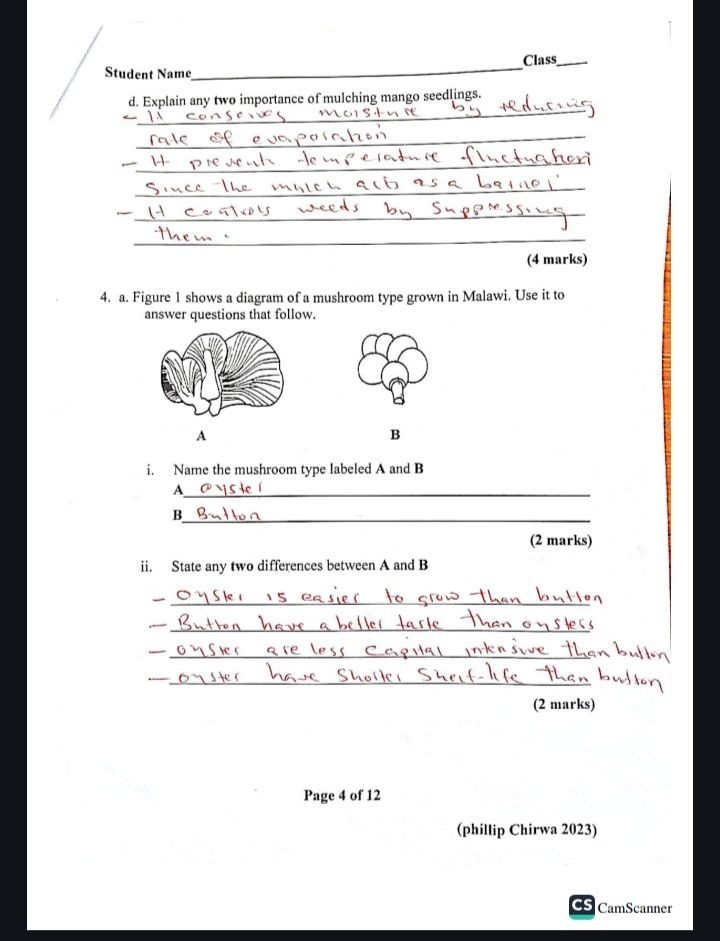 Student Name
Class
d. Explain any two importance of mulching mango seedlings.
- It conserves moisture by reducing
rate of evaporation
- It prevents temperature fluctuation
Since the mulch acts as a barrier
- It controls weeds by Suppressing
them.
(4 marks)
4. a. Figure 1 shows a diagram of a mushroom type grown in Malawi. Use it to
answer questions that follow.
A B
i. Name the mushroom type labeled A and B
A oyster
B Button
(2 marks)
ii. State any two differences between A and B
- oyster is easier to grow than button
- Button have a better taste than oysters
- oyster are less capital intensive than button
- oyster have shorter Shelf-life than button
(2 marks)
Page 4 of 12
(phillip Chirwa 2023)
CS CamScanner